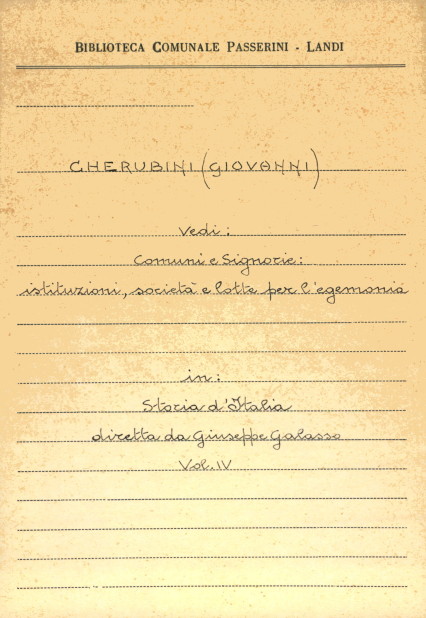 BIBLIOTECA COMUNALE PASSERINI - LANDI
CHERUBINI (GIOVANNI)
Vedi:
Comuni e Signorie:
istituzioni, società e lotte per l'egemonia
in:
Storia d'Italia
diretta da Giuseppe Galasso
Vol. IV